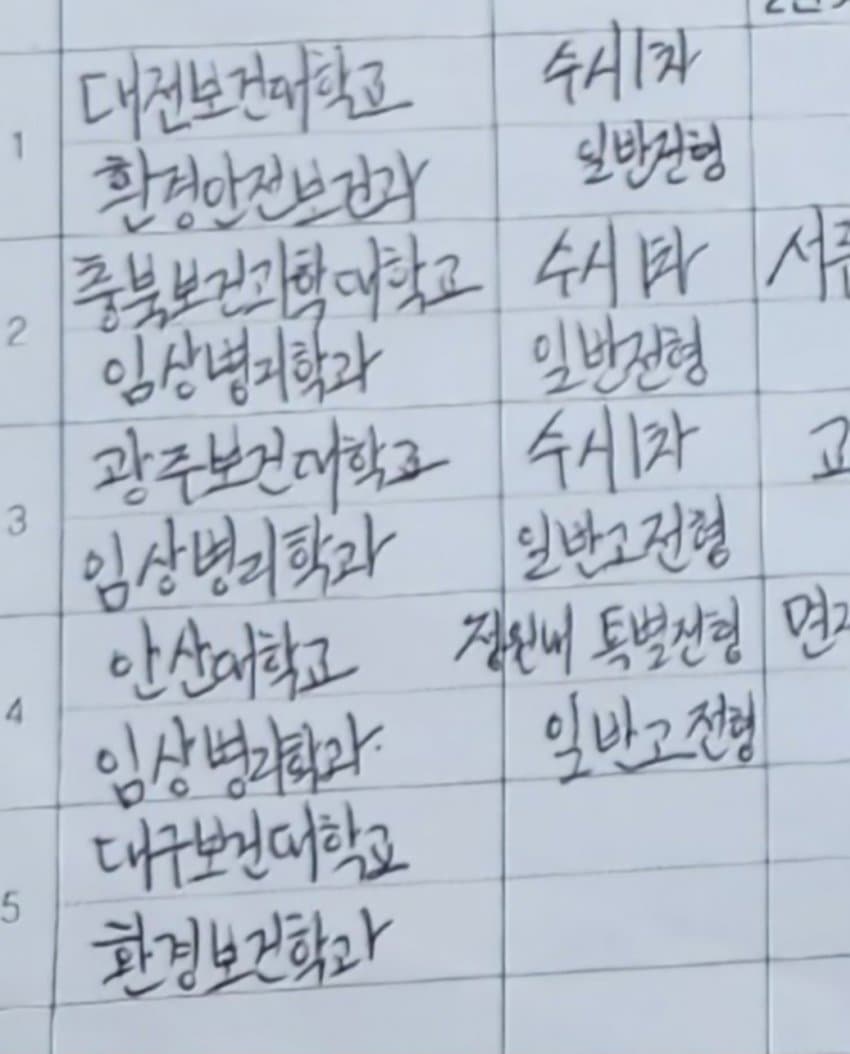 1 대전보건대학교 수시1차
환경안전보건과 일반전형
2 충북보건과학대학교 수시1차
임상병리학과 일반전형
3 광주보건대학교 수시1차 고
임상병리학과 일반고전형
4 안산대학교 정원내 특별전형
임상병리학과 일반고전형
5 대구보건대학교
환경보건학과